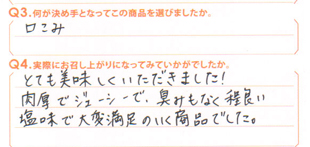 Q3.何が決め手となってこの商品を選びましたか。
口こみ
Q4.実際にお召し上がりになってみていかがでしたか。
とても美味しくいただきました!
肉厚でジューシーで、臭みもなく程良い
塩味で大変満足のいく商品でした。